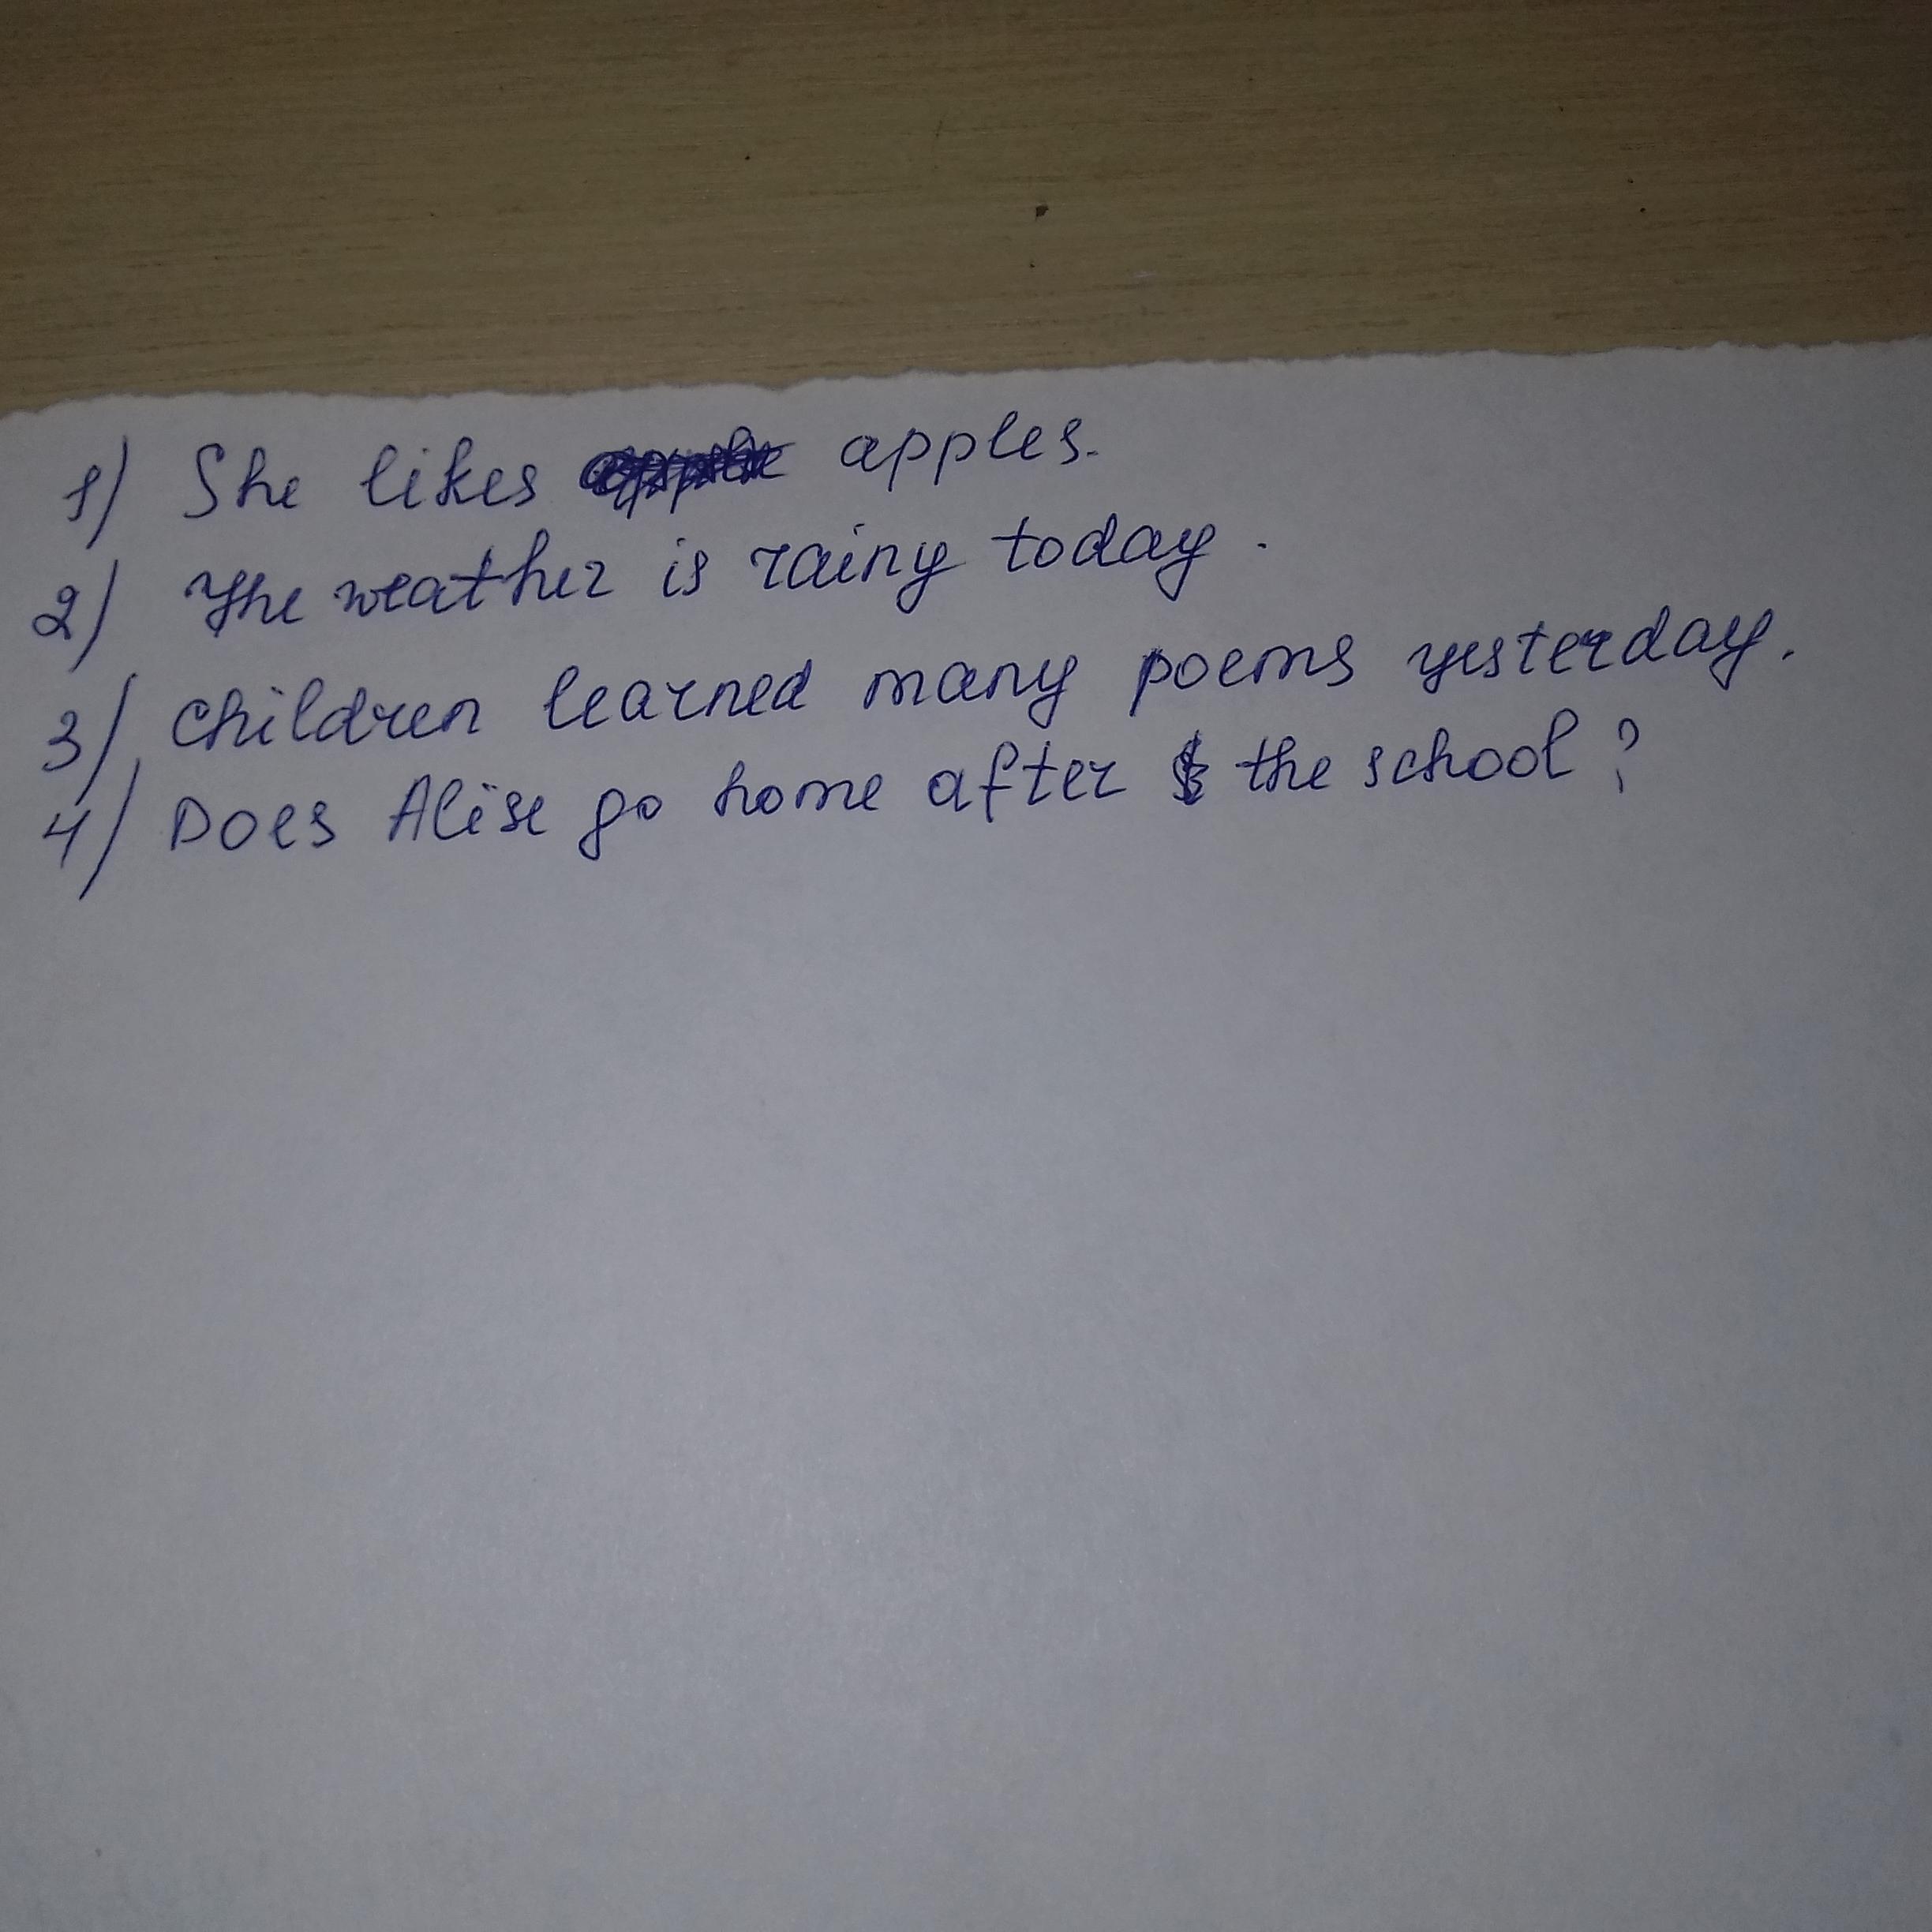 1) She likes apples.
2) The weather is rainy today.
3) Children learned many poems yesterday.
4) Does Alise go home after the school?